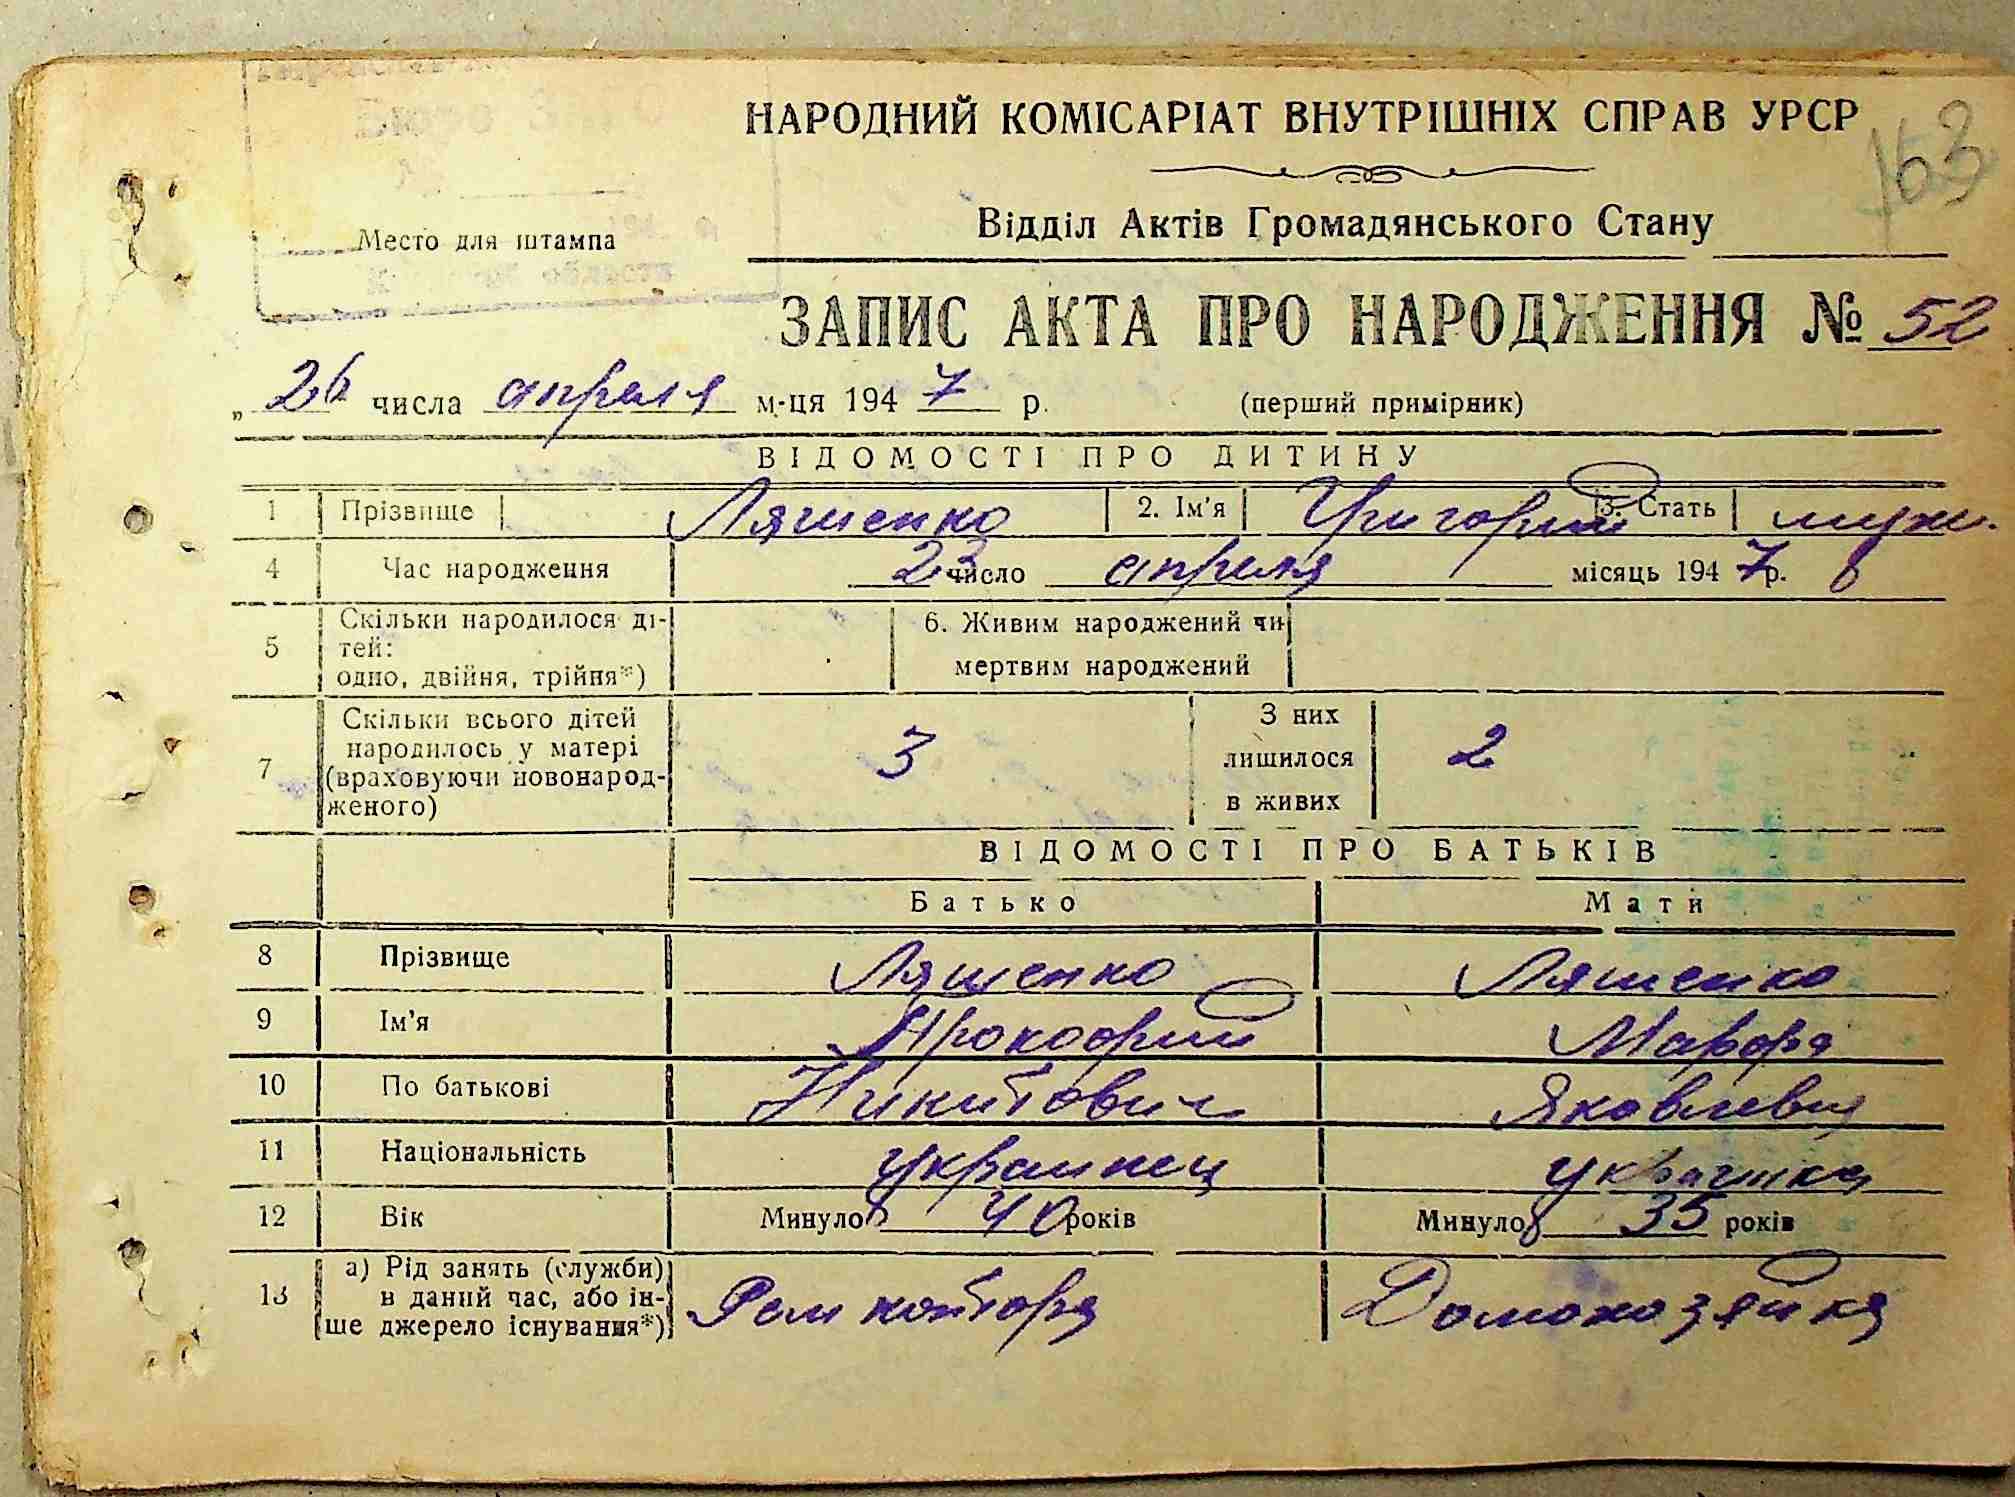 НАРОДНИЙ КОМІСАРІАТ ВНУТРІШНІХ СПРАВ УРСР
163
Відділ Актів Громадянського Стану
Место для штампа
ЗАПИС АКТА ПРО НАРОДЖЕННЯ № 52
„26" числа апреля м-ця 1947 р. (перший примірник)
ВІДОМОСТІ ПРО ДИТИНУ
1 Прізвище Ляшенко 2. Ім'я Григорий 3. Стать муж.
4 Час народження 23 число апреля місяць 1947 р.
5 Скільки народилося ді-
тей:
одно, двійня, трійня*)
6. Живим народжений чи
мертвим народжений
7 Скільки всього дітей
народилось у матері
(враховуючи новонарод-
женого)
3
З них
лишилося
в живих
2
ВІДОМОСТІ ПРО БАТЬКІВ
Батько Мати
8 Прізвище Ляшенко Ляшенко
9 Ім'я Прокофий Марфа
10 По батькові Никитович Яковлевна
11 Національність украинец украинка
12 Вік Минуло 40 років Минуло 35 років
13 а) Рід занять (служби)
в даний час, або ін-
ше джерело існування*)
Рем контора Домохозяйка